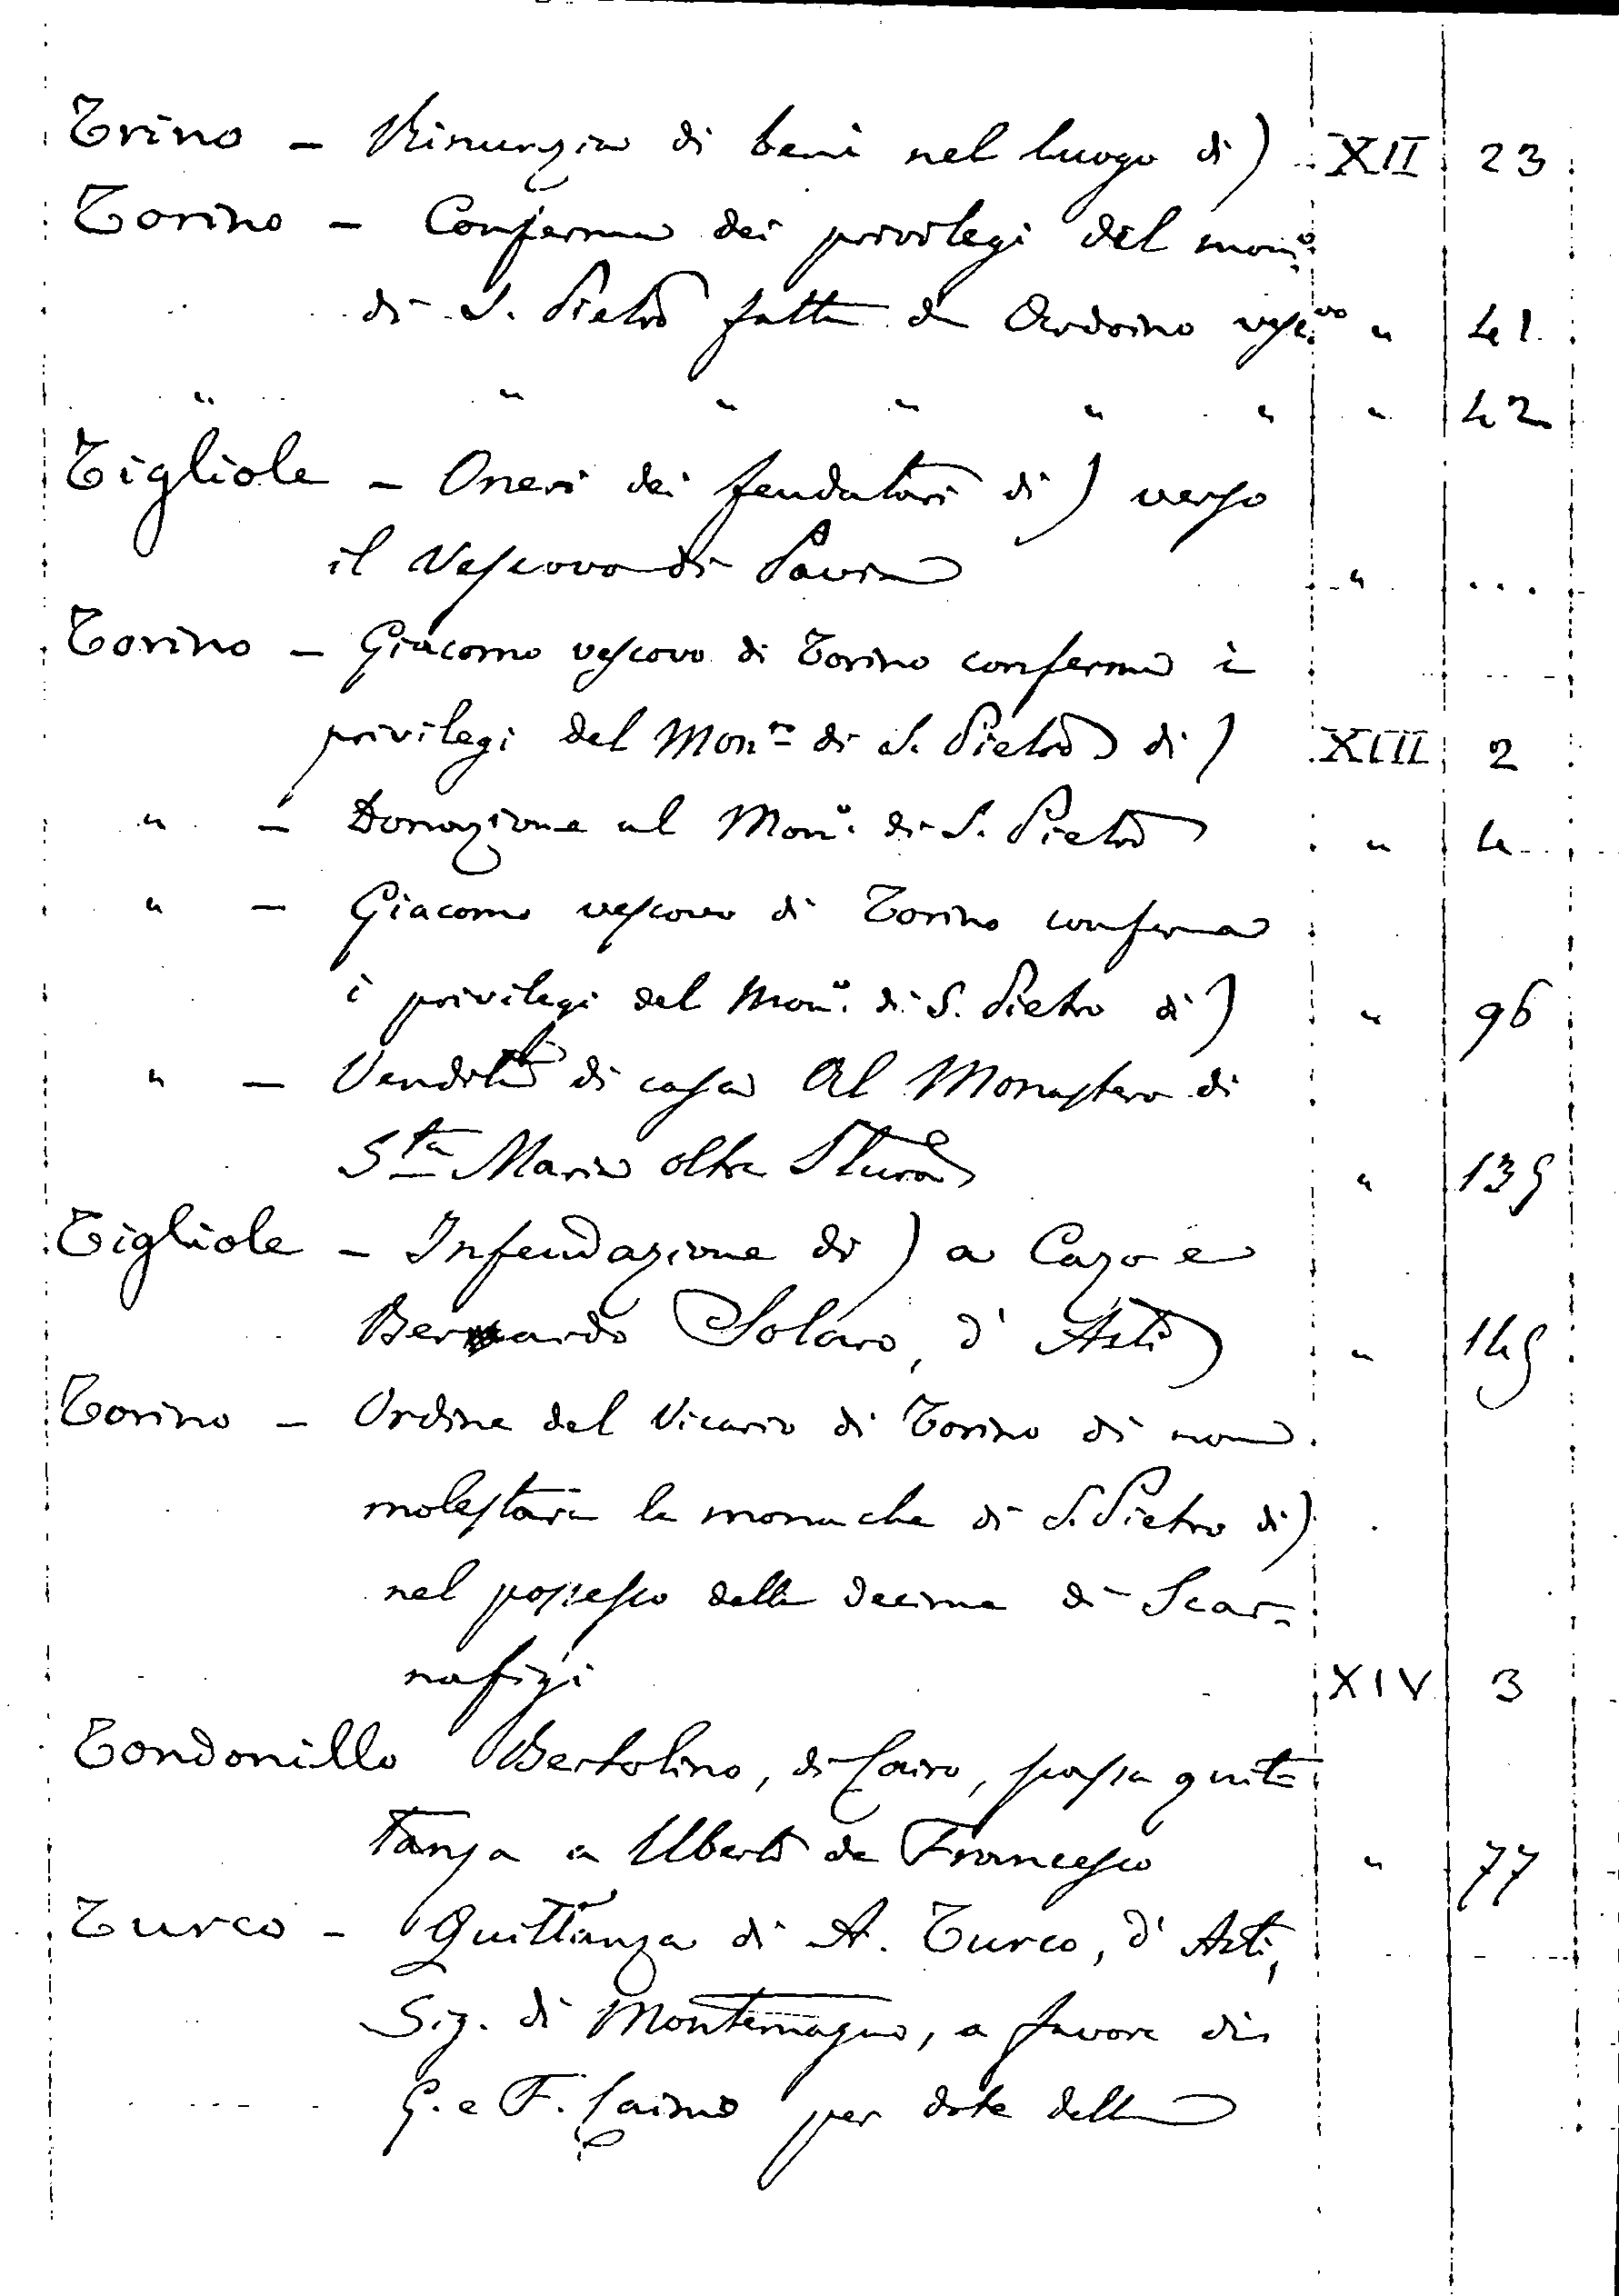 Trino - Rinunzia di beni nel luogo di) XII 23
Torino - Conferma dei privilegi del mon.o
di S. Pietro fatta da Ardoino vesc.vo " 41
" " " " " " " 42
Tigliole - Oneri dei feudatari di) verso
il Vescovo di Pavia " ...
Torino - Giacomo vescovo di Torino conferma i
privilegi del Mon.ro di S. Pietro di) XIII 2
" - Donazione al Mon.o di S. Pietro " 4
" - Giacomo vescovo di Torino conferma
i privilegi del Mon.o di S. Pietro di) " 96
" - Vendita di casa al Monastero di
S.ta Maria oltre Stura " 139
Tigliole - Infeudazione di) a Cazo e
Bernardo Solaro, d'Asti " 149
Torino - Ordine del Vicario di Torino di non
molestare le monache di S. Pietro di)
nel possesso delle decime di Scar-
nafigi XIV 3
Tondonillo Bertolino, di Cairo, passa quit-
tanza a Uberto de Francesco " 77
Turco - Quittanza di A. Turco, d'Asti,
Sig. di Montemagno, a favore di
G. e F. Caimo per dote della